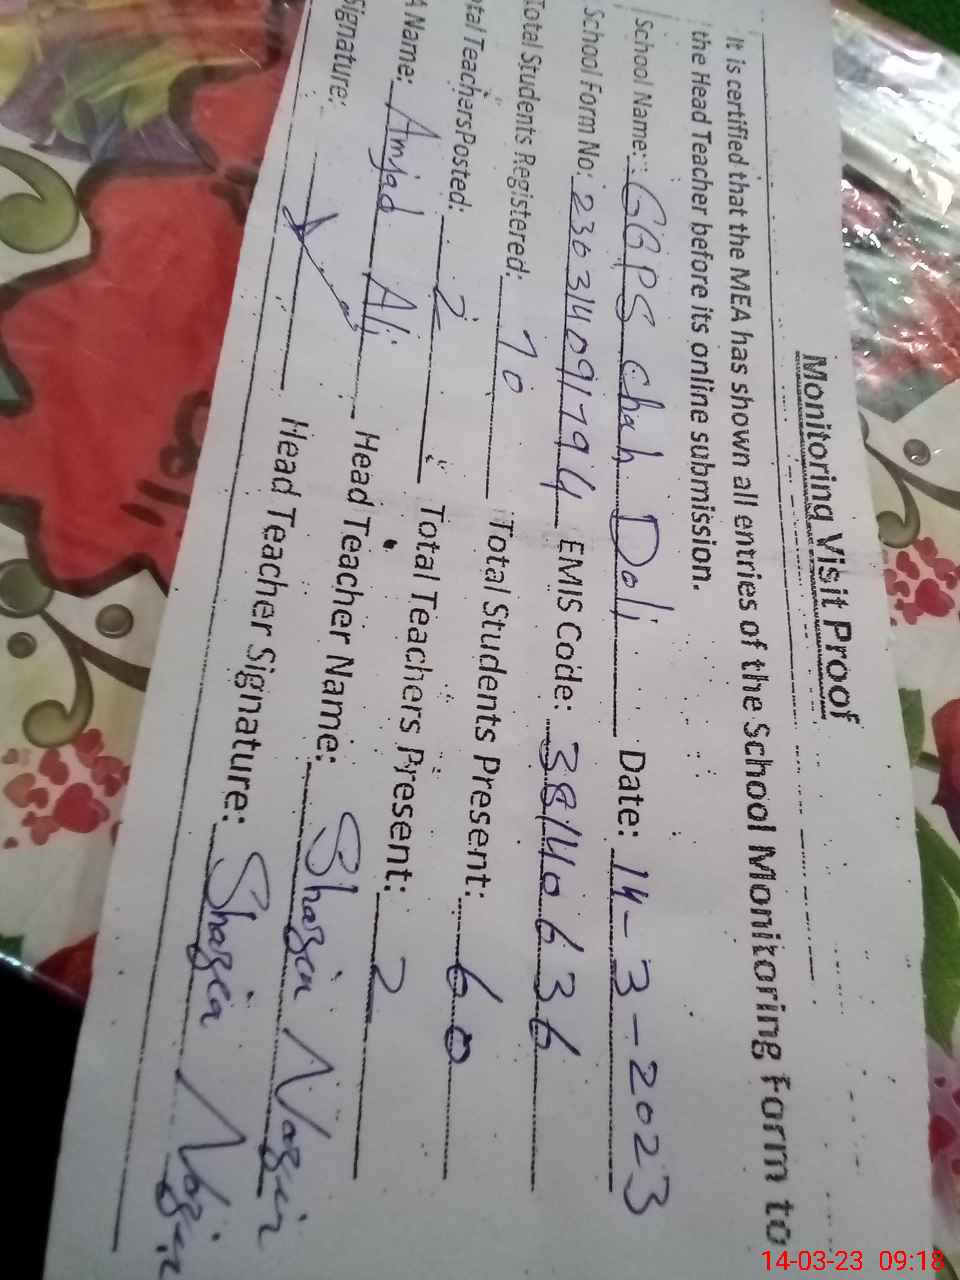 Monitoring Visit Proof
It is certified that the MEA has shown all entries of the School Monitoring Form to
the Head Teacher before its online submission.
School Name: GGPS Chah Doli Date: 14-3-2023
School Form No: 230314091794 EMIS Code: 38140636
Total Students Registered: 70 Total Students Present: 60
tal Teachers Posted: 2 Total Teachers Present: 2
A Name: Amjad Ali Head Teacher Name: Shazia Nazir
Signature: Head Teacher Signature: Shazia Nazir
14-03-23 09:18